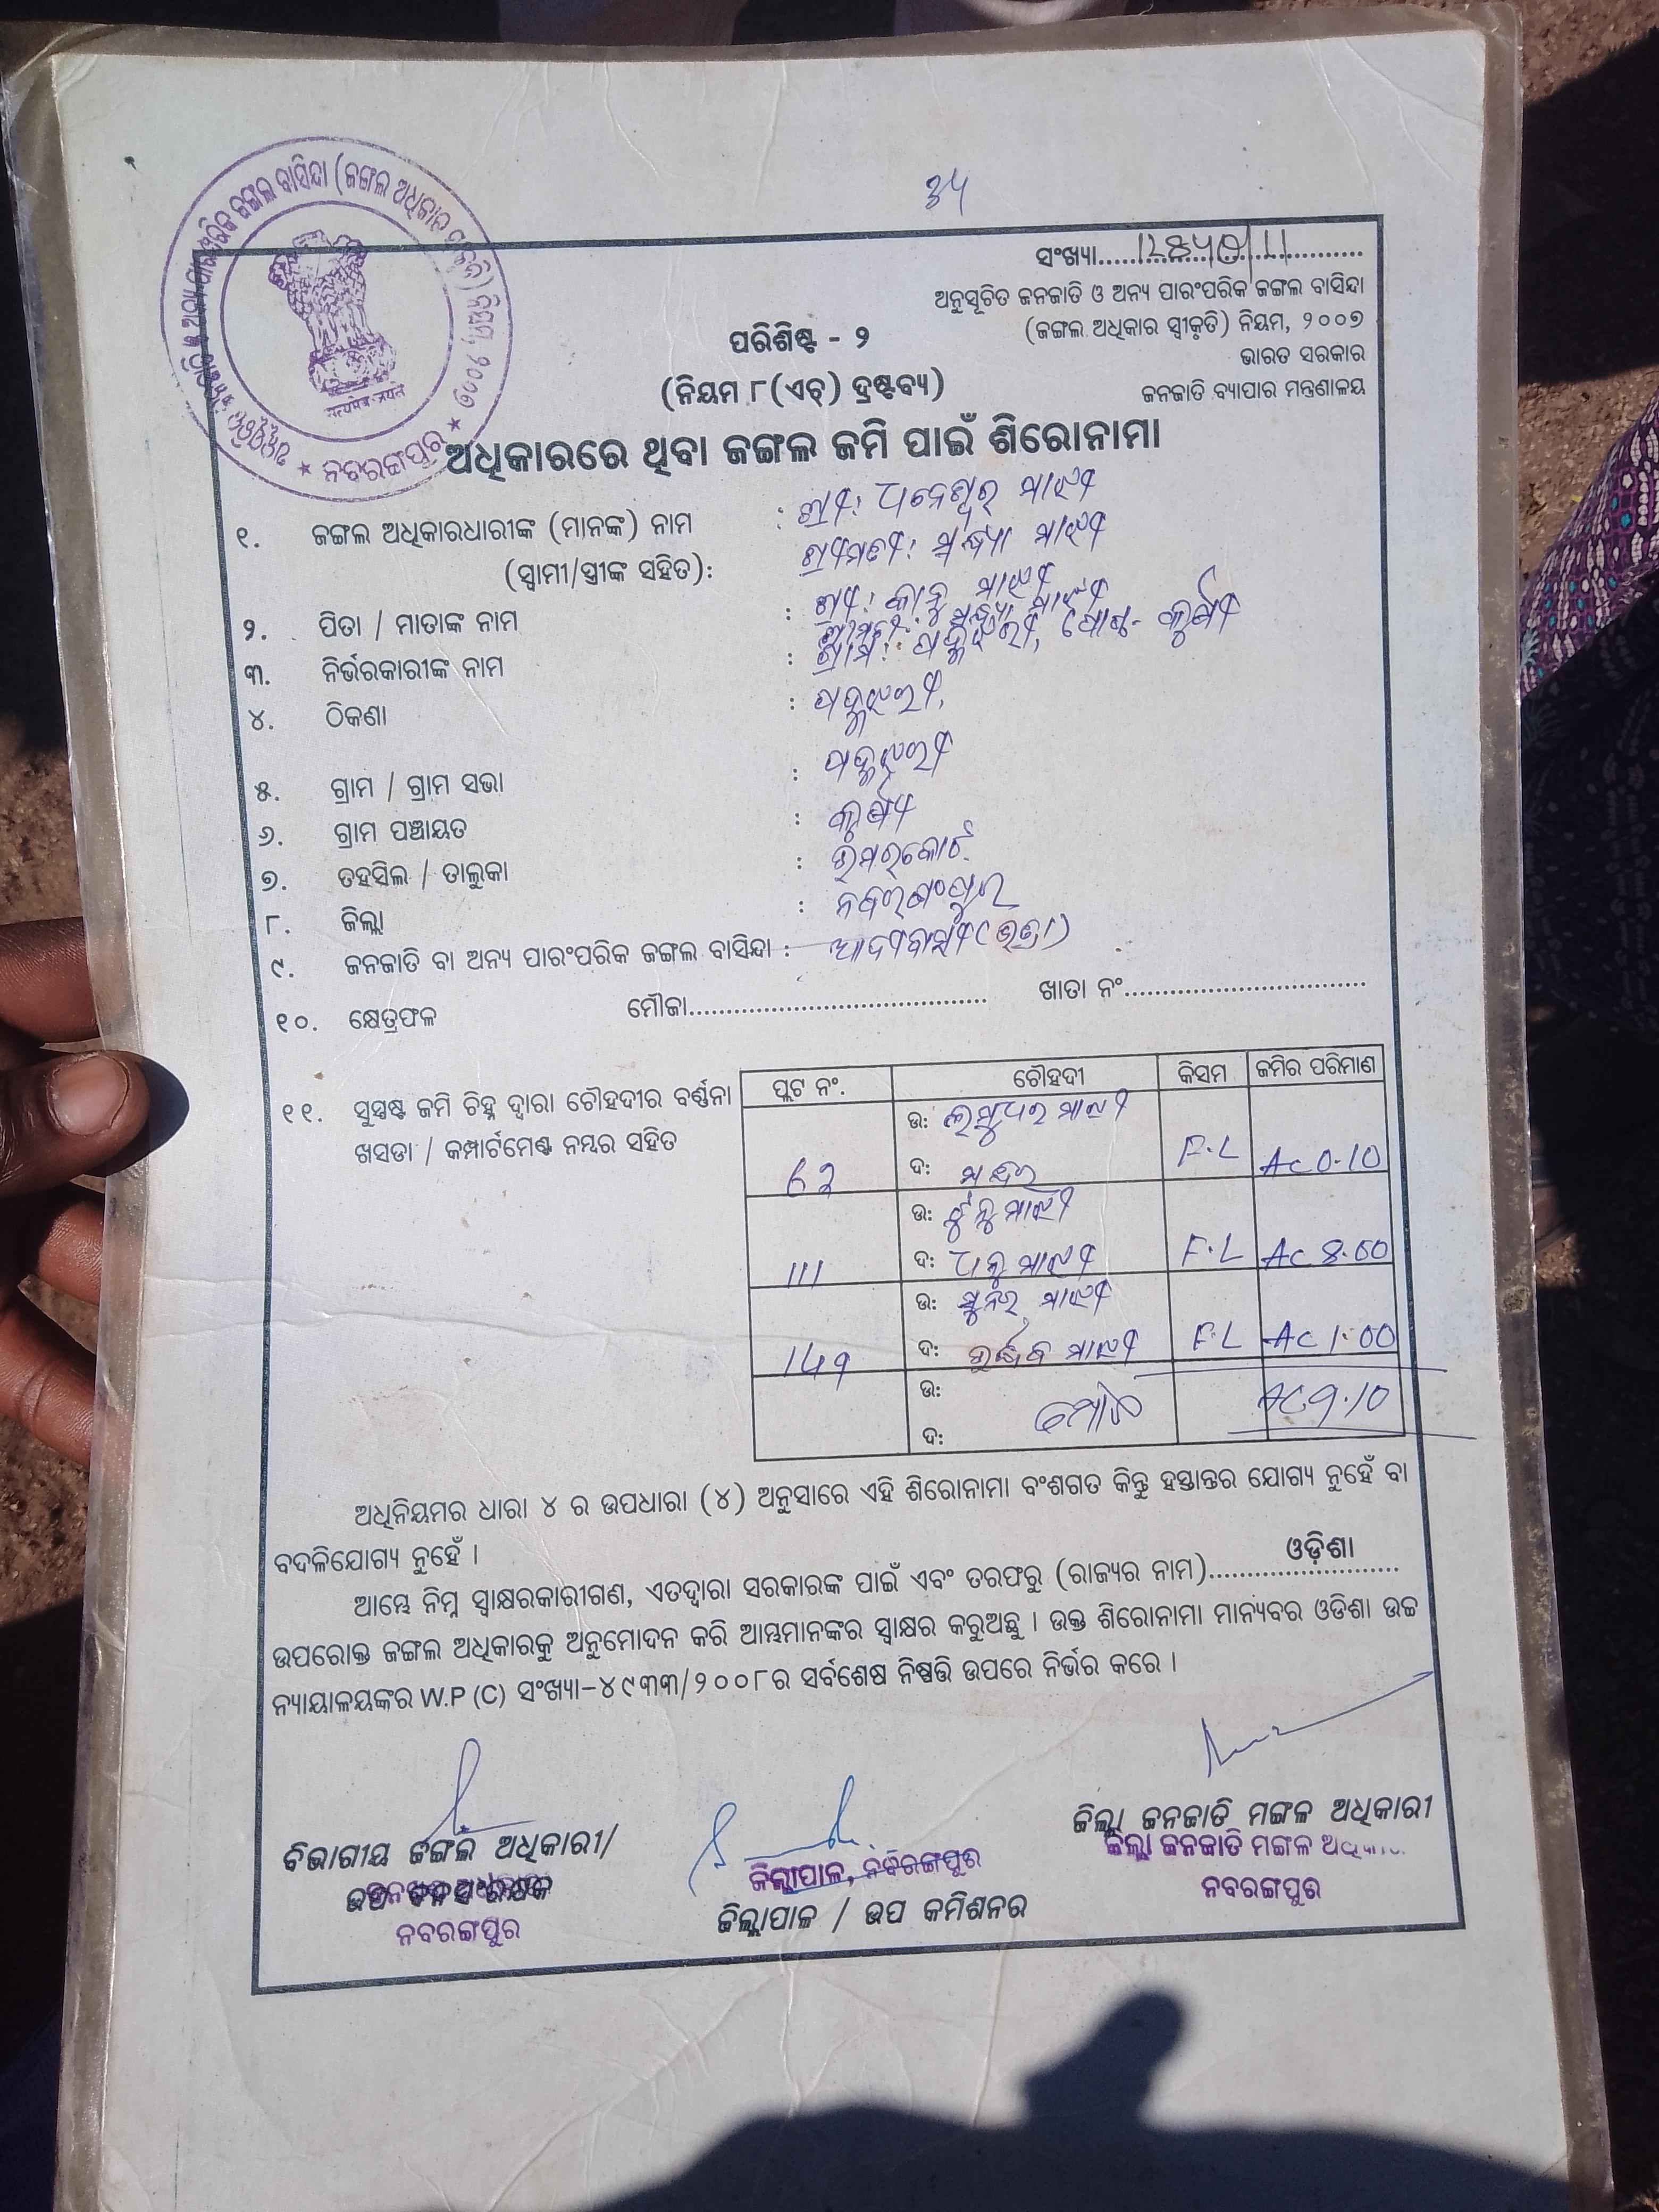 ୫୪
ସଂଖ୍ୟା
ଅନୁସୂଚିତ ଜନଜାତି ଓ ଅନ୍ୟ ପାରଂପରିକ ଜଙ୍ଗଲ ବାସିନ୍ଦା
(ଜଙ୍ଗଲ ଅଧିକାର ସ୍ୱୀକୃତି) ନିୟମ, ୨୦୦୭
ଭାରତ ସରକାର
ଜନଜାତି ବ୍ୟାପାର ମନ୍ତ୍ରଣାଳୟ
ପରିଶିଷ୍ଟ - ୨
(ନିୟମ ୮(ଏଚ୍) ଦ୍ରଷ୍ଟବ୍ୟ)
ଅଧିକାରରେ ଥିବା ଜଙ୍ଗଲ ଜମି ପାଇଁ ଶିରୋନାମା
ନବରଙ୍ଗପୁର
୧. ଜଙ୍ଗଲ ଅଧିକାରଧାରୀଙ୍କ (ମାନଙ୍କ) ନାମ : ଶ୍ରୀ: ଧନେଶ୍ୱର ମାଝୀ
(ସ୍ୱାମୀ/ସ୍ତ୍ରୀଙ୍କ ସହିତ): ଶ୍ରୀମତୀ: ସନ୍ଧ୍ୟା ମାଝୀ
୨. ପିତା / ମାତାଙ୍କ ନାମ : ଶ୍ରୀ: ମାଝୀ
୩. ନିର୍ଭରକାରୀଙ୍କ ନାମ : ଶ୍ରୀମତୀ: ସନ୍ଧ୍ୟା ମାଝୀ
୪. ଠିକଣା : ଗ୍ରାମ:
୫. ଗ୍ରାମ / ଗ୍ରାମ ସଭା :
୬. ଗ୍ରାମ ପଞ୍ଚାୟତ :
୭. ତହସିଲ / ତାଲୁକା : ଉମରକୋଟ
୮. ଜିଲ୍ଲା : ନବରଙ୍ଗପୁର
୯. ଜନଜାତି ବା ଅନ୍ୟ ପାରଂପରିକ ଜଙ୍ଗଲ ବାସିନ୍ଦା : ଆଦୀବାସୀ
୧୦. କ୍ଷେତ୍ରଫଳ ମୌଜା ଖାତା ନଂ
୧୧. ସୁସ୍ପଷ୍ଟ ଜମି ଚିହ୍ନ ଦ୍ୱାରା ଚୌହଦୀର ବର୍ଣ୍ଣନା
ଖସଡା / କମ୍ପାର୍ଟମେଣ୍ଟ ନମ୍ବର ସହିତ
ପ୍ଲଟ ନଂ. ଚୌହଦୀ କିସମ ଜମିର ପରିମାଣ
ଉ: ମାଝୀ
ଦ: F.L Ac 0.10
ଉ: ମାଝୀ
111 ଦ: ମାଝୀ F.L Ac 8.00
ଉ: ମାଝୀ
ଦ: ମାଝୀ F.L Ac 1.00
ଉ: ମୋଟ Ac 9.10
ଦ:
ଅଧିନିୟମର ଧାରା ୪ ର ଉପଧାରା (୪) ଅନୁସାରେ ଏହି ଶିରୋନାମା ବଂଶଗତ କିନ୍ତୁ ହସ୍ତାନ୍ତର ଯୋଗ୍ୟ ନୁହେଁ ବା
ବଦଳିଯୋଗ୍ୟ ନୁହେଁ ।
ଆମ୍ଭେ ନିମ୍ନ ସ୍ୱାକ୍ଷରକାରୀଗଣ, ଏତଦ୍ୱାରା ସରକାରଙ୍କ ପାଇଁ ଏବଂ ତରଫରୁ (ରାଜ୍ୟର ନାମ) ଓଡ଼ିଶା
ଉପରୋକ୍ତ ଜଙ୍ଗଲ ଅଧିକାରକୁ ଅନୁମୋଦନ କରି ଆମ୍ଭମାନଙ୍କର ସ୍ୱାକ୍ଷର କରୁଅଛୁ । ଉକ୍ତ ଶିରୋନାମା ମାନ୍ୟବର ଓଡିଶା ଉଚ୍ଚ
ନ୍ୟାୟାଳୟଙ୍କର W.P (C) ସଂଖ୍ୟା-୪୯୩୩/୨୦୦୮ର ସର୍ବଶେଷ ନିଷ୍ପତ୍ତି ଉପରେ ନିର୍ଭର କରେ ।
ବିଭାଗୀୟ ଜଙ୍ଗଲ ଅଧିକାରୀ/
ଉପ ବନସଂରକ୍ଷକ
ନବରଙ୍ଗପୁର
ଜିଲ୍ଲାପାଳ, ନବରଙ୍ଗପୁର
ଜିଲ୍ଲାପାଳ / ଉପ କମିଶନର
ଜିଲ୍ଲା ଜନଜାତି ମଙ୍ଗଳ ଅଧିକାରୀ
ଜିଲ୍ଲା ଜନଜାତି ମଙ୍ଗଳ
ନବରଙ୍ଗପୁର